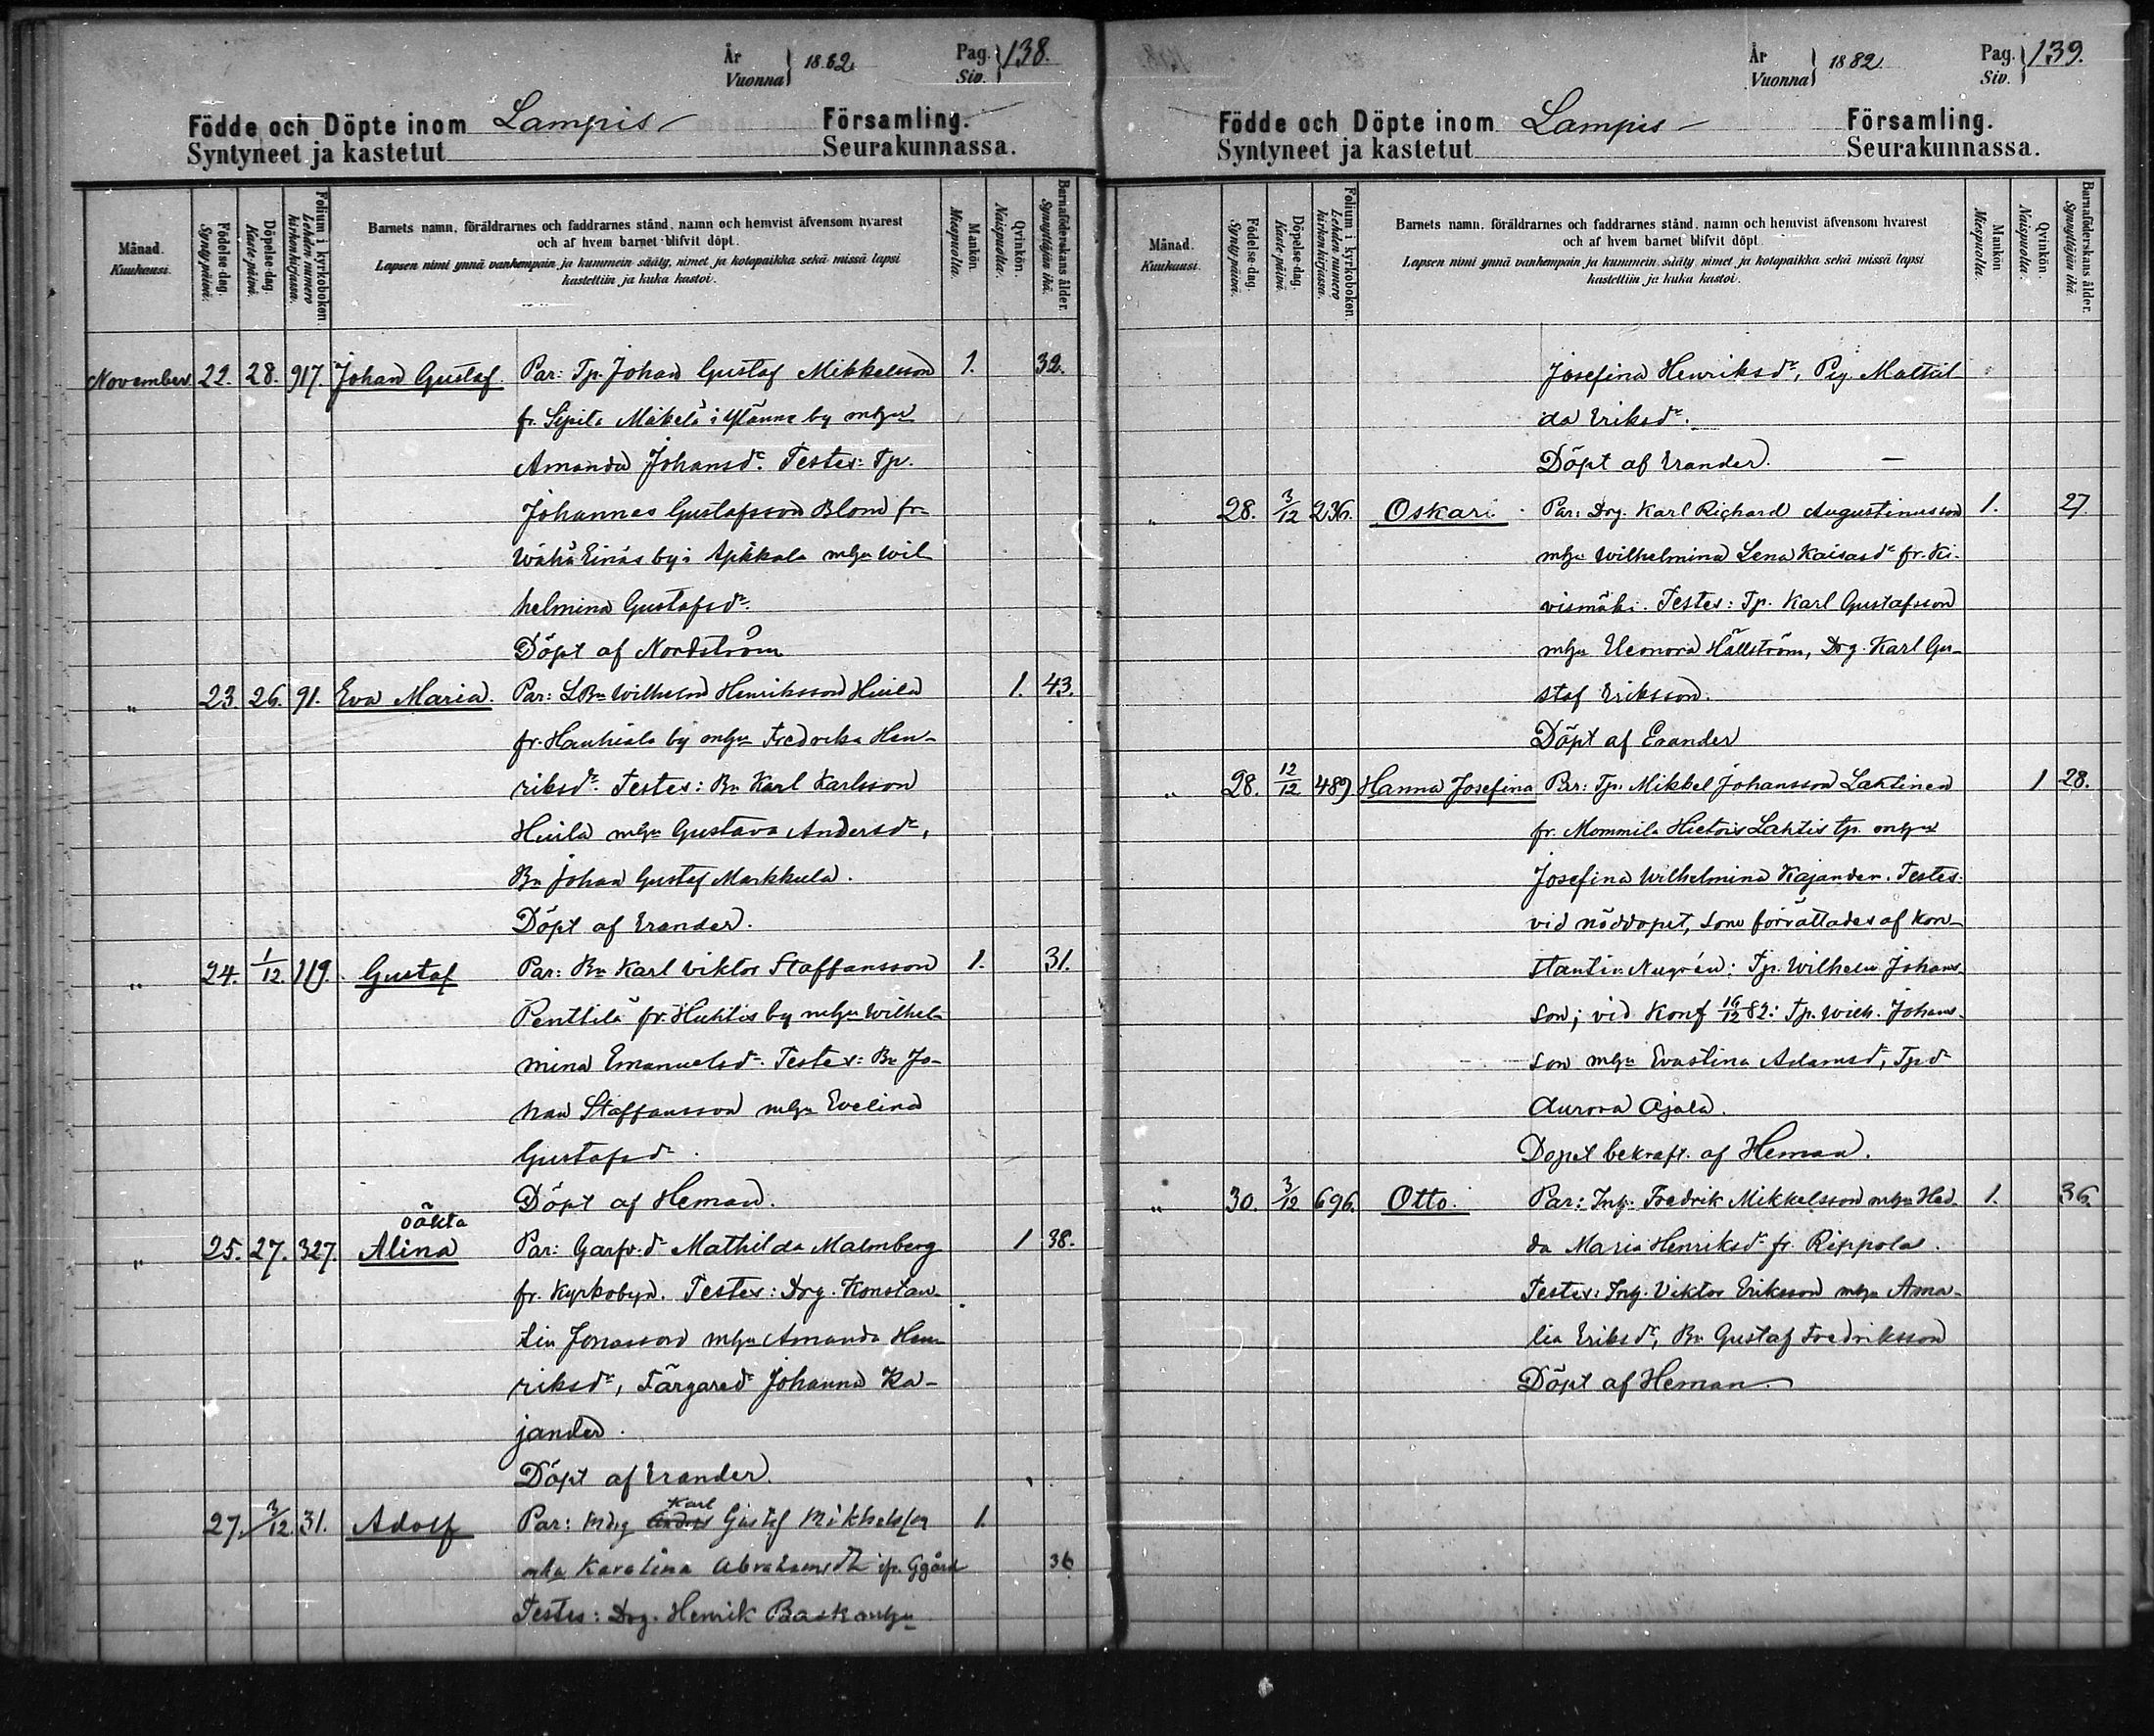 År
Vuonna } 1882.
Pag.
Siv. } 138.
Födde och Döpte inom Lampis Församling.
Syntyneet ja kastetut Seurakunnassa.
Månad.
Kuukausi.
Födelse-dag.
Synty päivä.
Döpelse-dag.
Kaste päivä.
Folium i kyrkoboken.
Lehden numero kirkonkirjassa.
Barnets namn, föräldrarnes och faddrarnes stånd, namn och hemvist äfvensom hvarest
och af hvem barnet blifvit döpt.
Lapsen nimi ynnä vanhempain ja kummein sääty, nimet ja kotopaikka sekä missä lapsi
kastettiin ja kuka kastoi.
Mankön.
Miespuolia.
Qvinkön.
Naispuolia.
Barnaföderskans ålder.
Synnyttäjän ikä.
November 22. 28. 917. Johan Gustaf Par: Tp. Johan Gustaf Mikkelsson 1. 32.
fr. Sipilä Mäkelä i by mhu
Amanda Johansdr. Testes: Tp.
Johannes Gustafsson Blom fr
by i mhu Wil
helmina Gustafsdr.
Döpt af Nordström
" 23. 26. 91. Eva Maria. Par: LBn Wilhelm Henriksson Huila 1. 43.
fr. Hauhiala by mhu Fredrika Hen-
riksdr. Testes: Bn Karl Karlsson
Huila mhu Gustava Andersdr,
Bn Johan Gustaf Markkula.
Döpt af Erander.
" 24. 1/12. 119. Gustaf Par: Bn Karl Viktor Staffansson 1. 31.
Penttilä fr. Huhtis by mhu Wilhel-
mina Emanuelsdr. Testes: Bn Jo-
han Staffansson mhu Evelina
Gustafsdr.
Döpt af Heman.
oäkta
" 25. 27. 327. Alina Par: Garfv.dr Mathilda Malmberg 1 38.
fr. Kyrkobyn. Testes: Drg. Konstan-
tin Jonasson mhu Amanda Hen-
riksdr, Färgaredr Johanna Ka-
jander.
Döpt af Erander.
Karl
27. 3/12. 31. Adolf Par: Mdrg Anders Gustaf Mikkelsson 1.
mhu Karolina Abrahamsdr fr. Ggård 36
Testes: Drg. Henrik Bask mhu
År
Vuonna } 1882.
Pag.
Siv. } 139.
Födde och Döpte inom Lampis Församling.
Syntyneet ja kastetut Seurakunnassa.
Månad.
Kuukausi.
Födelse-dag.
Synty päivä.
Döpelse-dag.
Kaste päivä.
Folium i kyrkoboken.
Lehden numero kirkonkirjassa.
Barnets namn, föräldrarnes och faddrarnes stånd, namn och hemvist äfvensom hvarest
och af hvem barnet blifvit döpt
Lapsen nimi ynnä vanhempain ja kummein sääty nimet ja kotopaikka sekä missä lapsi
kastettiin ja kuka kastoi.
Mankön
Miespuolia.
Qvinkön.
Naispuolia.
Barnaföderskans ålder.
Synnyttäjän ikä.
Josefina Henriksdr, Pig. Mathil-
da Eriksdr.
Döpt af Erander. —
" 28. 3/12 236. Oskari. Par: Drg. Karl Richard Augustinusson 1. 27.
mhu Wilhelmina Lena Kaisasdr fr. Ki-
vismäki. Testes: Tp. Karl Gustafsson
mhu Eleonora Hällström, Drg. Karl Gu-
staf Eriksson.
Döpt af Erander
" 28. 12/12 489 Hanna Josefina Par: Tp. Mikkel Johansson Lahtinen 1 28.
fr. Mommila Hietois Lahtis tp. mhu
Josefina Wilhelmina Kajander. Testes:
vid nöddopet, som förrättades af Kon-
stantin Nygrén: Tp. Wilhelm Johans-
son; vid Konf 16/12 82: Tp. Wilh. Johans-
son mhu Evastina Adamsdr, Tpdr
Aurora Ajala.
Dopet bekräft. af Heman.
" 30. 3/12 696. Otto. Par: Inh. Fredrik Mikkelsson mhu Hed- 1. 36.
da Maria Henriksdr fr. Rippola.
Testes: Inh. Viktor Eriksson mhu Ama-
lia Eriksdr, Bn Gustaf Fredriksson
Döpt af Heman.